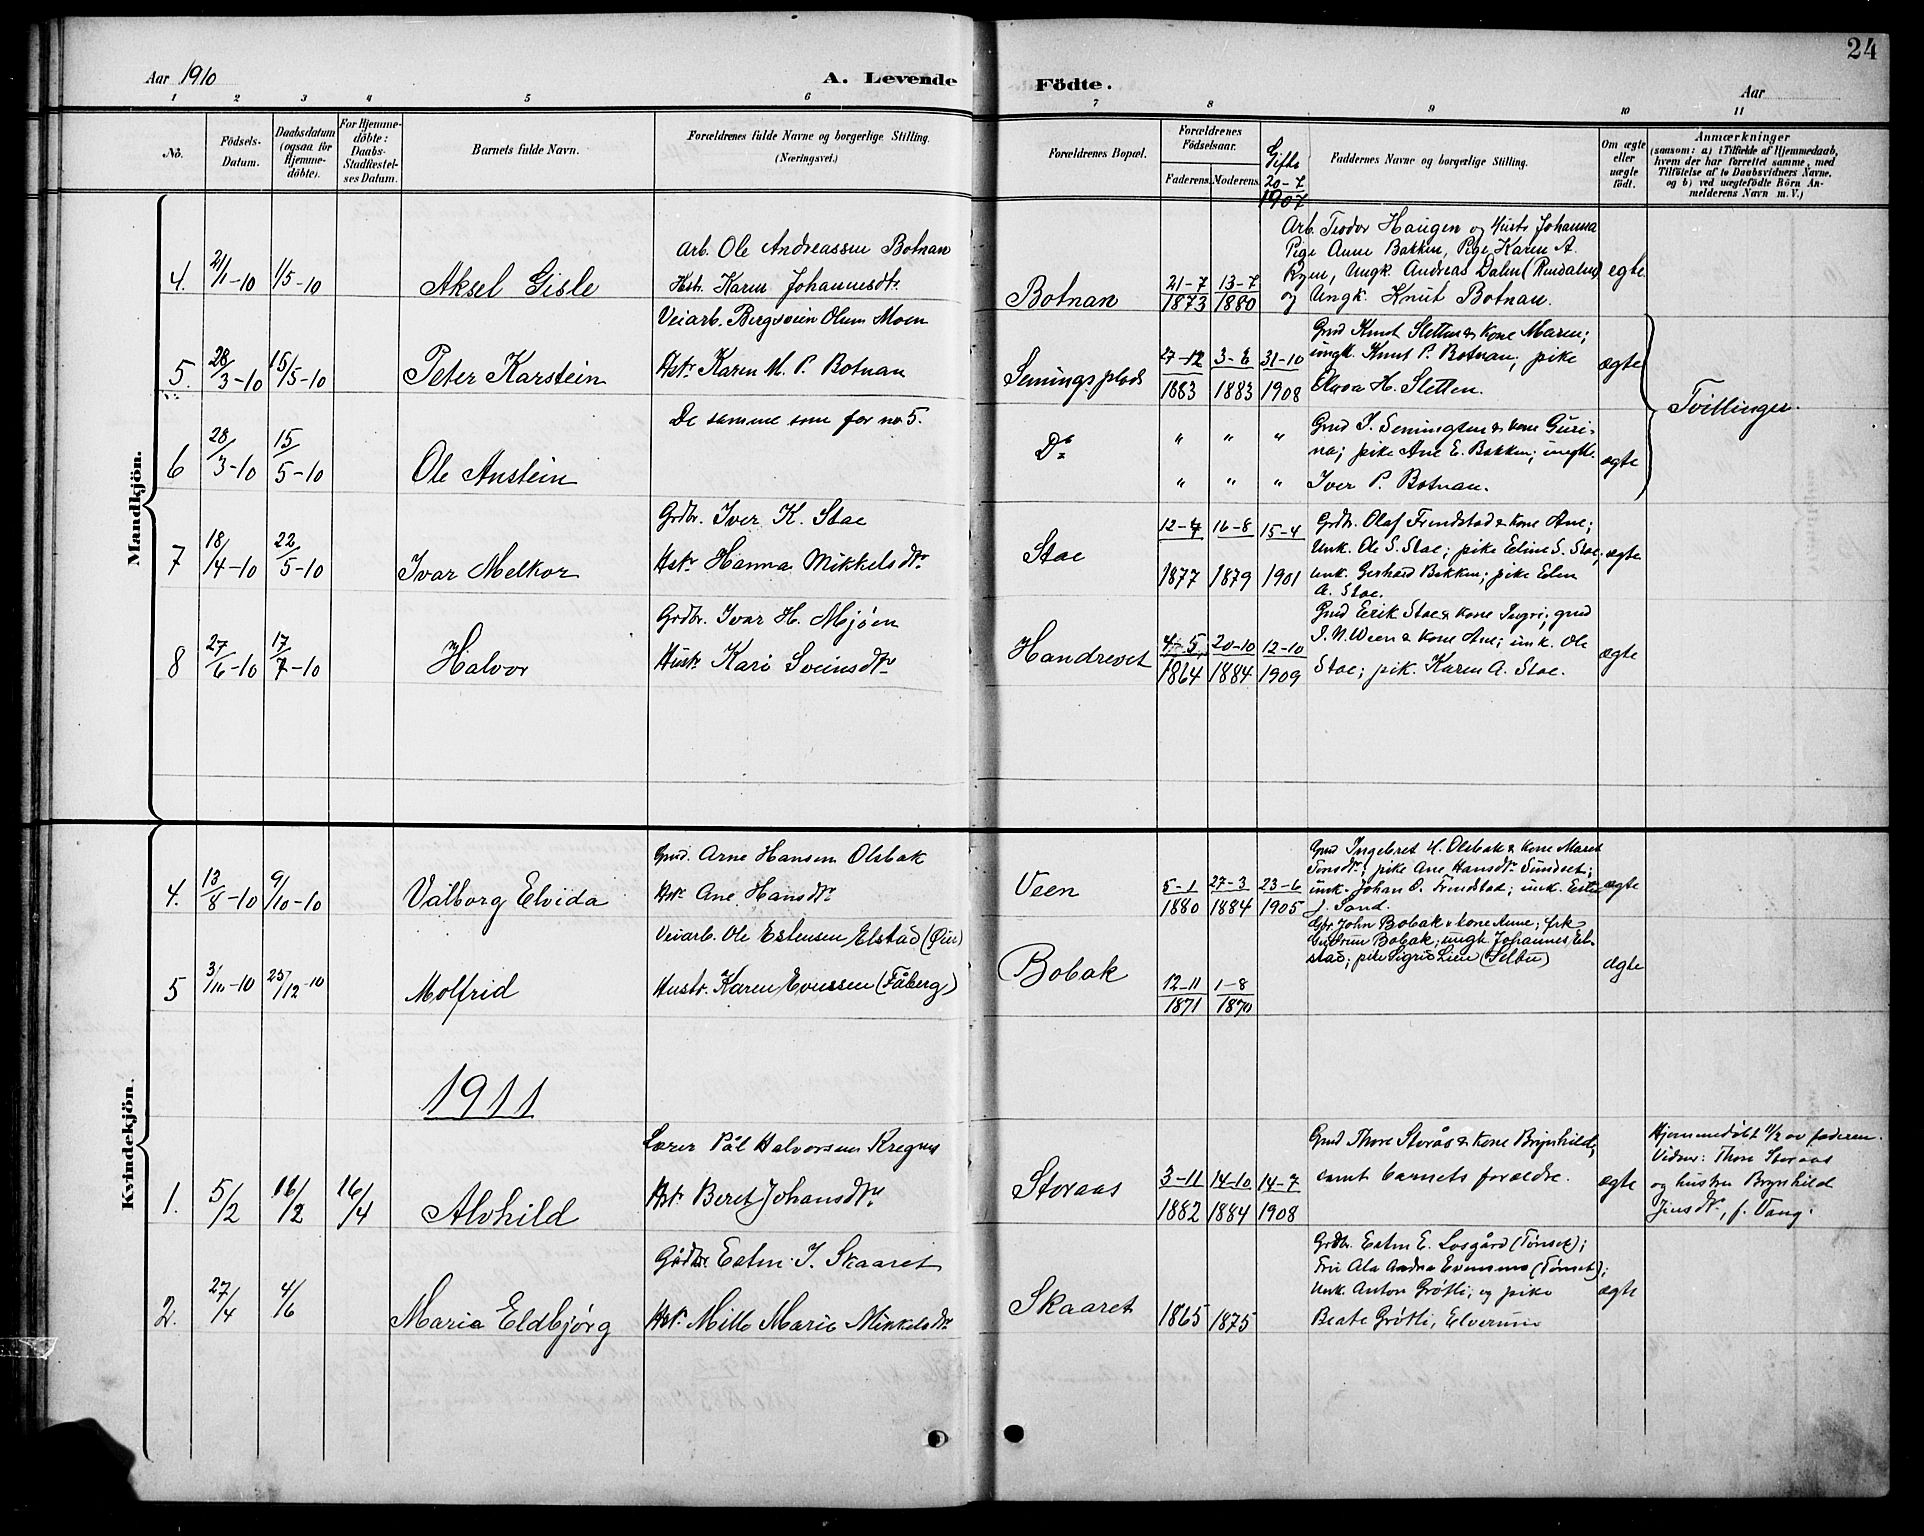 24
Aar 1910
A. Levende Födte.
Aar
1 2 3 4 5 6 7 8 9 10 11
No.
Födsels-Datum.
Daabsdatum (ogsaa for Hjemme-döbte).
For Hjemme-döbte: Daabs-Stadfæstel-ses Datum.
Barnets fulde Navn.
Forældrenes fulde Navne og borgerlige Stilling. (Næringsvei.)
Forældrenes Bopæl.
Forældrenes Födselsaar.
Faderens. Moderens.
Gifte
Faddernes Navne og borgerlige Stilling.
Om ægte eller uægte födt.
Anmærkninger
(saasom: a) i Tilfælde af Hjemmedaab,
hvem der har forrettet samme, med
Tilföielse af to Daabsvidners Navne.
og b) ved uægtefödte Börn An-
melderens Navn m. V.)
Mandkjön.
20-7
1907
4. 21/1-10 1/5-10 Aksel Gisle
Arb. Ole Andreassen Botnan
Hstr. Karen Johannesdtr.
Botnan
21-7 13-7
1873 1880
Arb. Teodor Haugen og Hustr Johanna
Pige Anne Bakken, Pige Karen A.
Ryen, Ungk. Andreas Dalen (Rindalen)
og Ungk. Knut Botnan.
egte
5. 28/3-10 15/5-10 Peter Karstein
Veiarb. Bergsvein Olsen Moen
Hstr. Karen M. P. Botnan
Semingsplads
27-12 3-6 31-10
1883 1883 1908
Gmd Knut Sletten & kone Maren;
ungk. Knut P. Botnan; pike
H. Sletten.
ægte
Tvillinger.
6 28/3-10 15/5-10 Ole Anstein
De samme som for no 5.
Do
" " "
" " "
Gmd I. Semingsen & kone Guri-
na; pike Ane E. Bakken; ungk.
Iver P. Botnan.
ægte
7 18/4-10 22/5-10 Ivar Melkor
Grdbr. Iver K. Stae
Hstr. Hanna Mikkelsdtr
Stae
12-4 16-8 15-4
1877 1879 1901
Grdbr. Olaf Frendstad & kone Ane;
Unk. Ole S. Stae; pike Eline S. Stae;
unk. Gerhard Bakken; pike Elen
A. Stae.
ægte
8 27/6-10 17/7-10 Halvor
Grdbr. Ivar H. Mjøen
Hustr. Kari Sveinsdtr
Handrevet
4-5 20-10 12-10
1864 1884 1909
Gmd Erik Stae & kone Ingri; gmd
I. N. Ween & kone Ane; unk. Ole
Stae; pik. Karen A. Stae.
ægte
Kvindekjön.
4. 13/8-10 9/10-10 Valborg Elvida
Gmd. Arne Hansen Olsbak
Hstr. Ane Hansdtr
Veen
5-1 27-3 23-6
1880 1884 1905
Gmd Ingebret H. Olsbak & kone Maret
Tomsdtr; pike Ane Hansdtr Sundset;
unk. Johan O. Frendstad; unk. Esten
J. Sand.
ægte
5 3/10-10 25/12-10 Molfrid
Veiarb. Ole Estensen Elstad (Øier)
Hustr. Karen Evensen (Fåberg)
Bobak
12-11 1-8
1871 1870
John Bobak & kone Anne; frk
Gudrun Bobak; ungk. Johannes El-
stad; pike Sigrid Lien (Selbu)
ægte
1911
1. 5/2 16/2 16/4 Alvhild
Lærer Pål Halvorsen Kregnes
Hstr. Beret Johansdtr
Storaas
3-11 14-10 14-7
1882 1884 1908
Gmd Thore Storås & kone Brynhild,
samt barnets forældre.
ægte
Hjemmedøbt 11/2 av faderen.
Vidner: Thore Storaas
og hustru Brynhild
Jensdtr, f. Vang.
2. 27/4 4/6 Maria Eldbjørg
Grdbr Esten J. Skaaret
Hstr. Mille Marie Mikkelsdtr
Skaaret
1865 1875
Grdbr. Esten E. Losgård (Tønset);
Fru Ala Andrea Evensen (Tønset);
Unk. Anton Grøtli; og pike
Beate Grøtli, Elverum
ægte